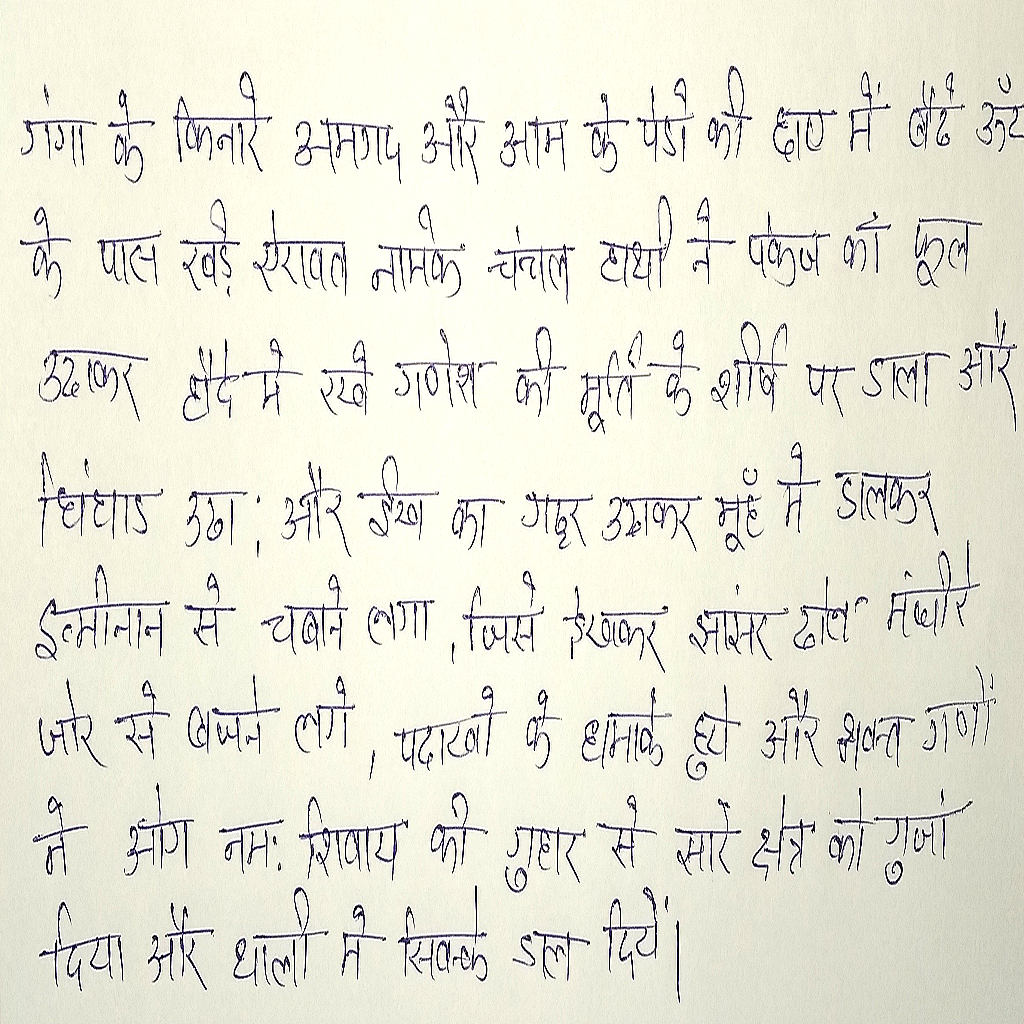 गंगा के किनारे अमगद और आम के पेडो की छाए में बैठे ऊँट
के पास खड़े ऐरावत नामके चंचल हाथी ने पंकज का फूल
उठाकर हौदे मे रखे गणेश की मूर्ति के शीर्ष पर डाला और
चिंघाड उठा; और ईख का गट्ठर उठाकर मूहँ मे डालकर
इत्मीनान से चबाने लगा, जिसे देखकर झांझर ढोल मंझीरे
जोर से बजने लगे, पटाखो के धमाके हुये और भक्त गणों
ने ओम नमः शिवाय की गुहार से सारे क्षेत्र को गुजां
दिया और थाली मे सिक्के डाल दियें।